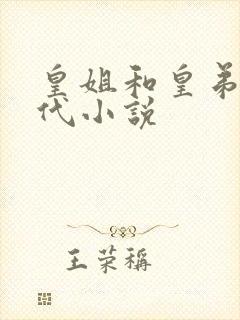 皇姐和皇弟
代小说
王荣称